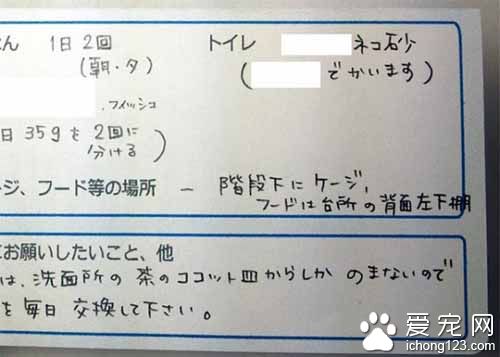 はん 1日2回
(朝・夕)
トイレ ネコ砂
( でかいます)
・フィッシュ
日 35gを2回に
分ける)
ージ、フード等の場所 ー 階段下にケージ,
フードは台所の背面左下棚
にお願いしたいこと、他
は、洗面所の茶のココット皿からしか のまないので
を毎日交換して下さい。
爱宠网
ichong123.com